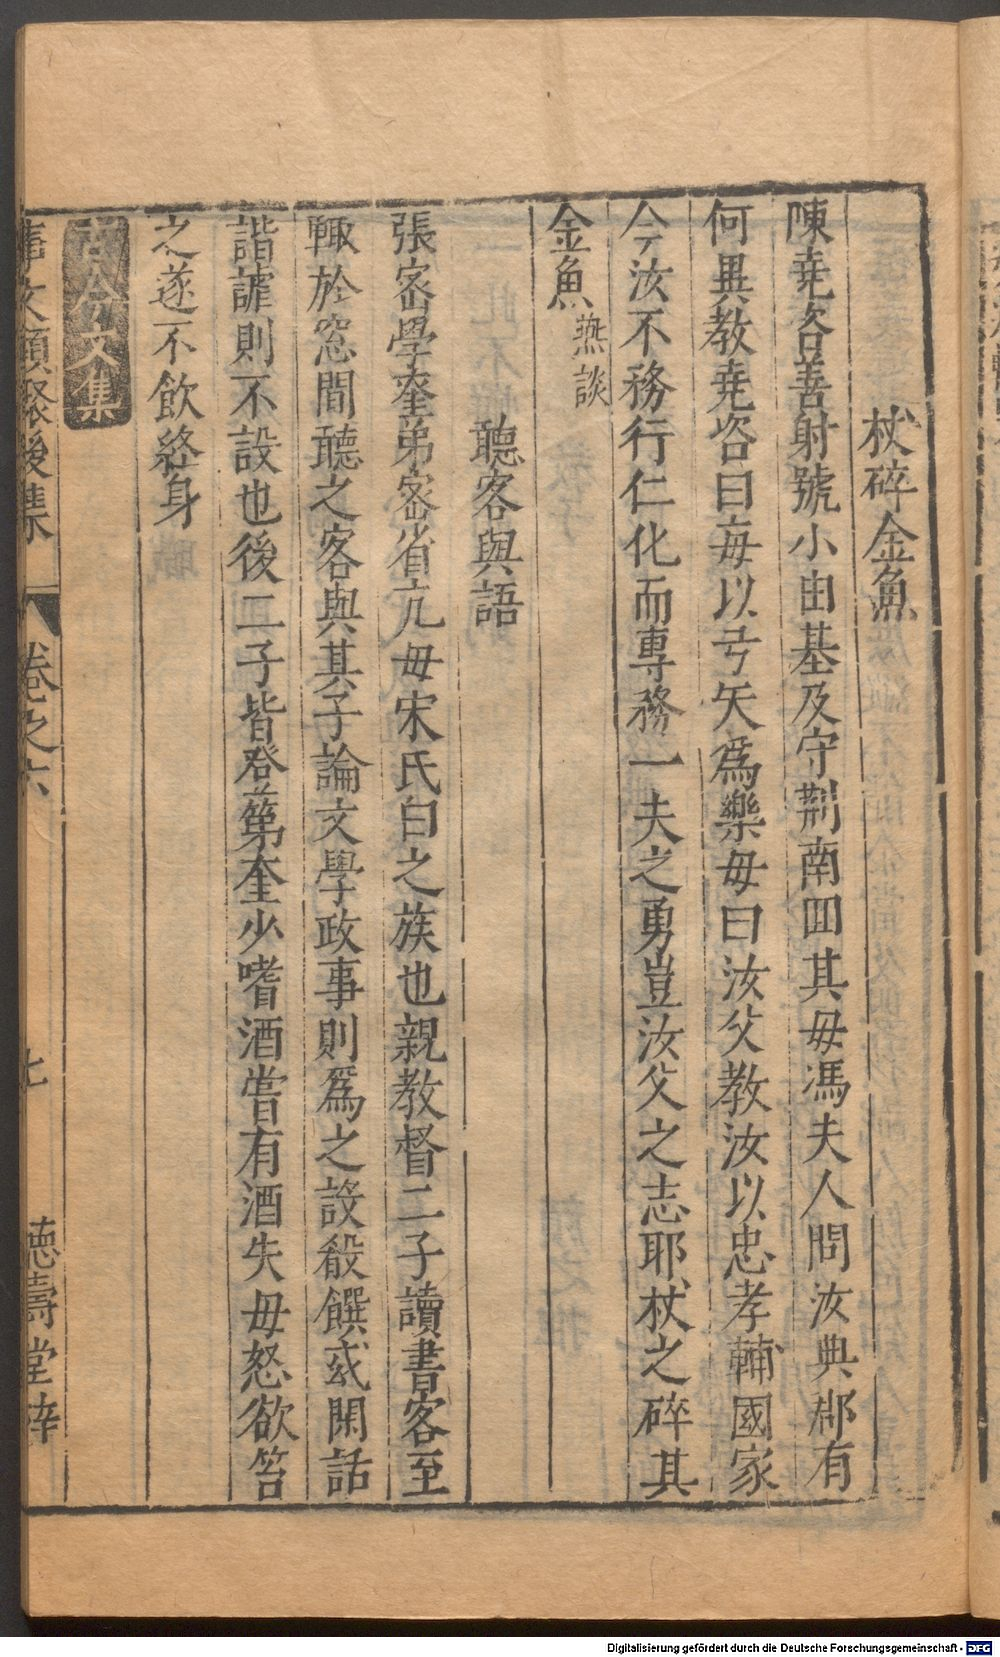 杖碎金魚
陳堯咨善射號小由基及守荆南囬其母馮夫人問汝典郡有
何異教堯咨曰每以弓矢爲樂母曰汝父教汝以忠孝輔國家
今汝不務行仁化而專務一夫之勇豈汝父之志耶杖之碎其
金魚燕談
聽客與語
張密學奎弟密省亢母宋氏白之族也親教督二子讀書客至
輙於窓間聽之客與其子論文學政事則爲之設殽饌或閑話
諧謔則不設也後二子皆登第奎少嗜酒嘗有酒失母怒欲笞
之遂不飲終身
古今文集
事文類聚後集
卷之六
七
德壽堂梓
Digitalisierung gefördert durch die Deutsche Forschungsgemeinschaft - DFG